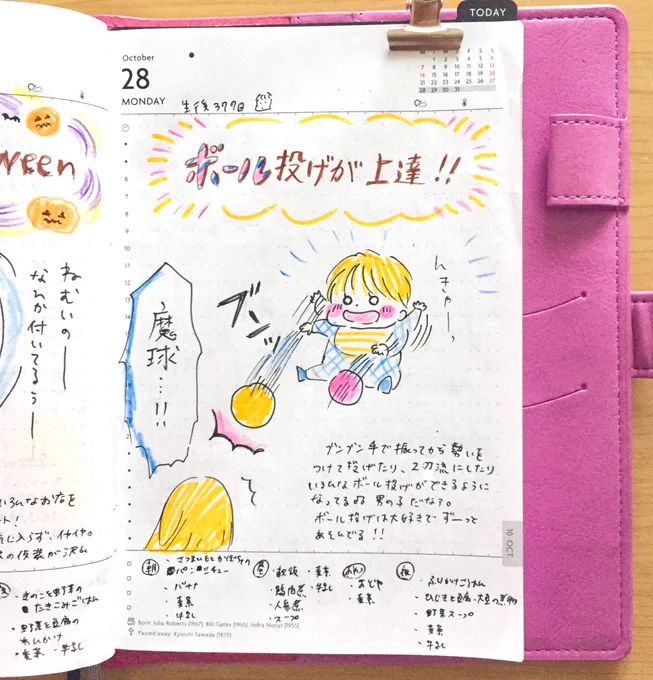 ween
ねむいのー
なんか付いてるぅー
TODAY
October
28
MONDAY
生後377日
M T W T F S S
1 2 3 4 5 6
7 8 9 10 11 12 13
14 15 16 17 18 19 20
21 22 23 24 25 26 27
28 29 30 31
6
7
8
9
10
11
12
13
14
ボール投げが上達!!
んきゃーっ
ブンッ
魔球…!!
ブンブン手で振ってから勢いを
つけて投げたり、2刀流にしたり
いろんなボール投げができるように
なってるぬ 男の子だなぁ。
ボール投げは大好きで ずーっと
あそんでる!!
10 OCT
朝
・さつまいもとかぼちゃの
パンシチュー
・バナナ
・麦茶
・牛乳
昼
・軟飯
・麦茶
・鶏肉煮
・牛乳
・人参煮
・スープ
おやつ
・おじや
・麦茶
夜
・ふりかけごはん
・ひじきと豆腐・大豆の煮物
・野菜スープ
・麦茶
・牛乳
Born: Julia Roberts (1967), Bill Gates (1955), Indra Nooyi (1955)
Passed away: Kyoichi Sawada (1970)
いろんなお店を
に入らず、イヤイヤ。
の仮装が沢山
・きのこと野菜の
たきこみごはん
・野菜と豆腐の
・麦茶 ・牛乳